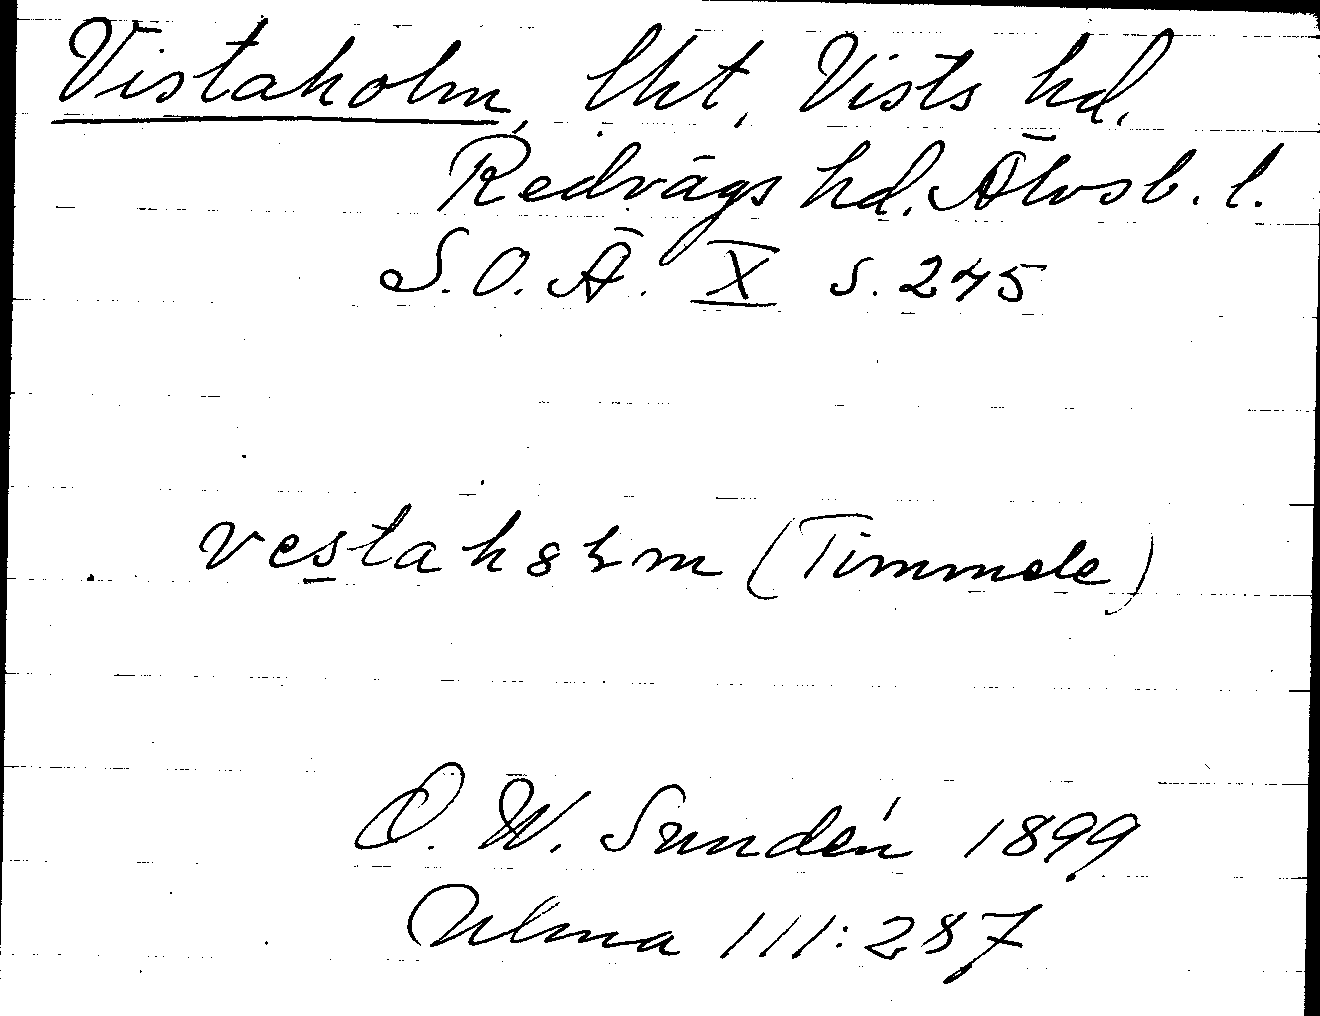 Vistaholm, lht, Vists hd.
Redvägs hd. Älvsb. l.
S.O.Ä. X s. 245
(Timmele)
O. W. Sundén 1899
Ulma 111:287